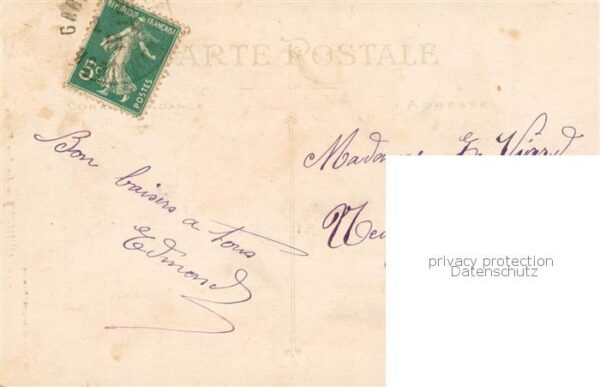 GAR
REPUBLIQUE FRANÇAISE
5c
POSTES
CARTE POSTALE
CORRESPONDANCE
ADRESSE
Bon baisers a tous
Edmond
privacy protection
Datenschutz